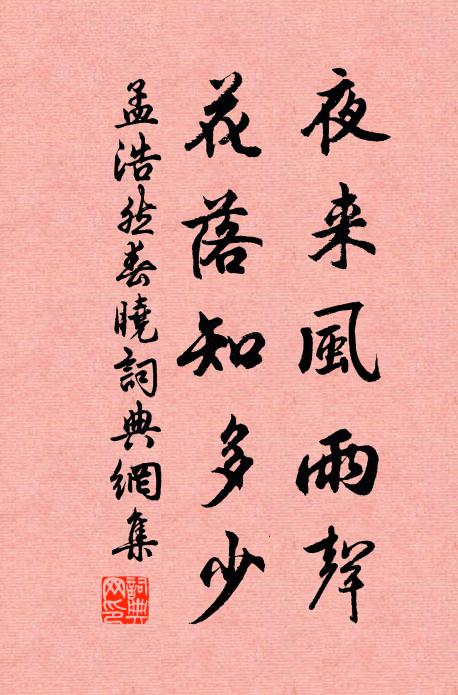 夜来風雨聲
花落知多少
孟浩然春曉詞典網集
詞典
网印